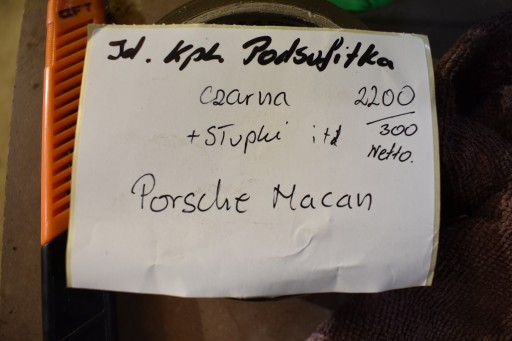 Jd. kpl. Podsufitka
czarna 2200
+ Słupki itd 300
Netto.
Porsche Macan